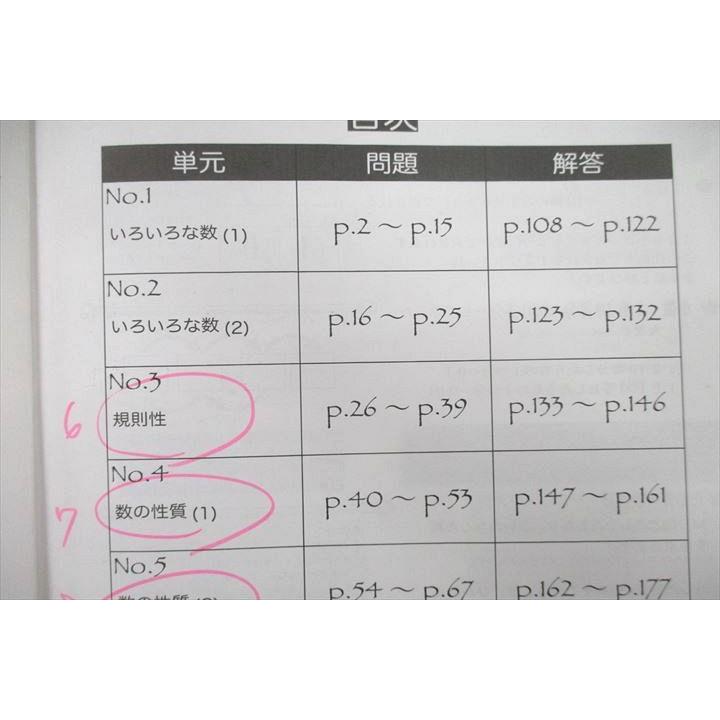 目次
単元 問題 解答
No.1
いろいろな数 (1) p.2 ～ p.15 p.108 ～ p.122
No.2
いろいろな数 (2) p.16 ～ p.25 p.123 ～ p.132
No.3
6 規則性 p.26 ～ p.39 p.133 ～ p.146
No.4
7 数の性質 (1) p.40 ～ p.53 p.147 ～ p.161
No.5
数の性質 (2) p.54 ～ p.67 p.162 ～ p.177